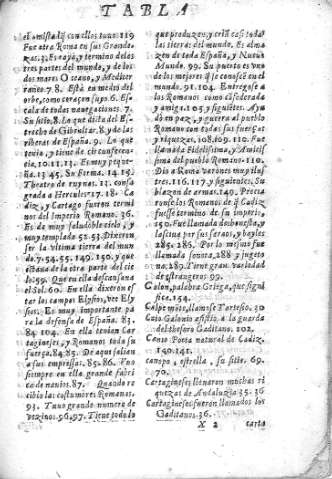 TABLA
el amistad q̃ con ellos tuuo. 119
Fue otra Roma en sus Grande-
zas. 3. Es rayo, y termino de las
tres partes del mundo, y de los
dos mares Oceano, y Mediter
raneo. 7. 8. Està en medio del
orbe, como coraçon suyo. 6. Es
cala de todas nauegaciones. 7.
Su sitio, 8. Lo que dista del Es-
trecho de Gibraltar. 8. y de las
riberas de España. 9. Lo que
tenia, y tiene de circunferen-
cia, 10. 11. 13. Es muy peque-
ña, 13. 45. Su forma. 14. 15.
Theatro de ruynas. 13. consa
grada a Hercules. 17. 18. Ca-
diz, y Cartago fueron termi-
nos del Imperio Romano. 36.
Es de muy saludable cielo, y
muy templado. 51. 53. Dixeron
ser la vltima tierra del mun
do. 7. 54. 55. 149. 150. y que
estaua de la otra parte del cie
lo. 59. Que en ella descansaua
el Sol. 60. En ella dixeron es
tar los campos Elysios, vee Ely
sios. Es muy importante pa
ra la defensa de España. 83.
84. 104. En ella tenian Car
tagineses, y Romanos toda su
fuerça, 84. 85. De aqui salian
a sus empressas. 85. 86. Vuo
siempre en ella grande fabri
ca de nauios. 87. Quando re
cibio las costumbres Romanas.
93. Tuuo grande numero de
vezinos. 96. 97. Tiene todo lo
que producen, y crian casi todas
las tierras del mundo. Es alma
zen de toda España, y Nueuo
Mundo. 99. Su puerto es vno
de los mejores q̃ se conosce en el
mundo. 91. 104. Entregose a
los Romanos como confederada
y amiga. 105. y siguietes. Ayu
dò en paz, y guerra al pueblo
Romano con todas sus fuerças
y riquezas, 108. 109. 110. Fue
llamada Fidelissima, y Amicis
sima del pueblo Romano. 110.
Dio a Roma varones muy illus
tres. 116. 117. y siguientes. Su
blazon de armas. 149. Precia
ronse los Romanos de q̃ Cadiz
fuesse termino de su imperio,
150. Fue llamada deshonesta, y
lasciua por sus saraos, y bayles
285. 286. Por lo mismo fue
llamada sonora, 288 y jugeto
na. 289. Tiene gran variedad
de frangeres. 99.
Calon, palabra Griega, que signi
fice. 154.
Calpe mijos, llamose Tartesio. 30
Caio Galonio assistio a la guarda
del thesoro Gaditano. 102.
Canio Poeta natural de Cadiz,
140. 141.
canopo, estrella, su sitio. 69.
70.
Cartagineses lleuaron muchas ri
quezas de Andaluzia 35. 36
Cartagineses fueron llamados los
Gaditanos. 36.
X 2 carta